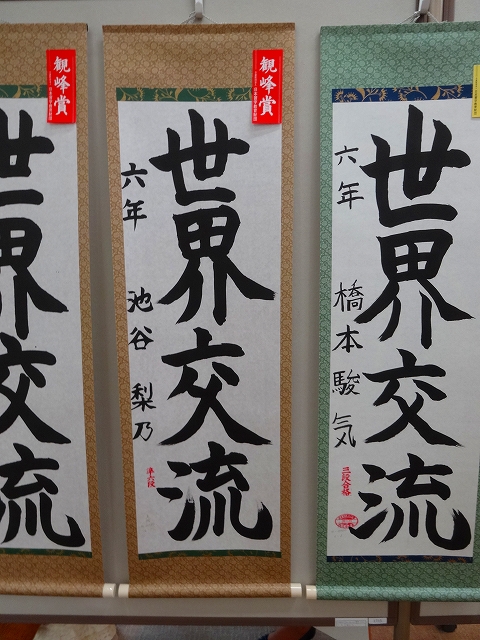 世界交流
観峰賞
世界交流
六年 池谷 梨乃
準六段
観峰賞
世界交流
六年 橋本駿気
三段合格